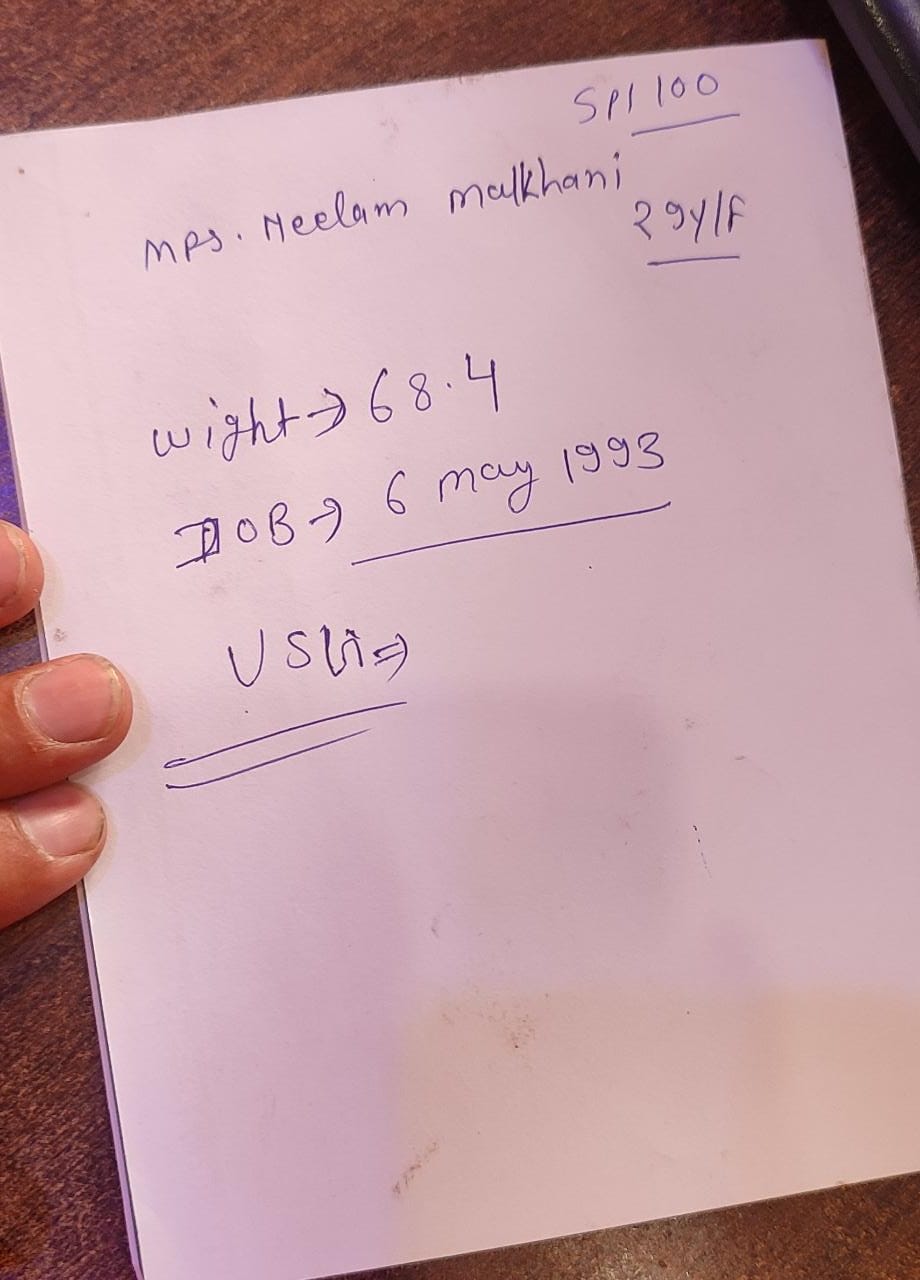 SPI 100
Mrs. Neelam malkhani
29Y/F
wight → 68.4
DOB → 6 may 1993